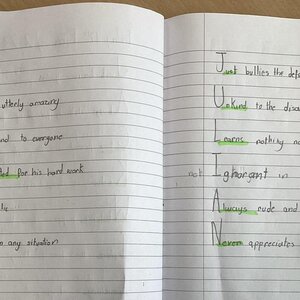 utterly amazing
nd to everyone
for his hard work
to any situation
Just bullies the defe
Unkind to the disa
Learns nothing no
not Ighorant in
Always rude and
Never appreciates